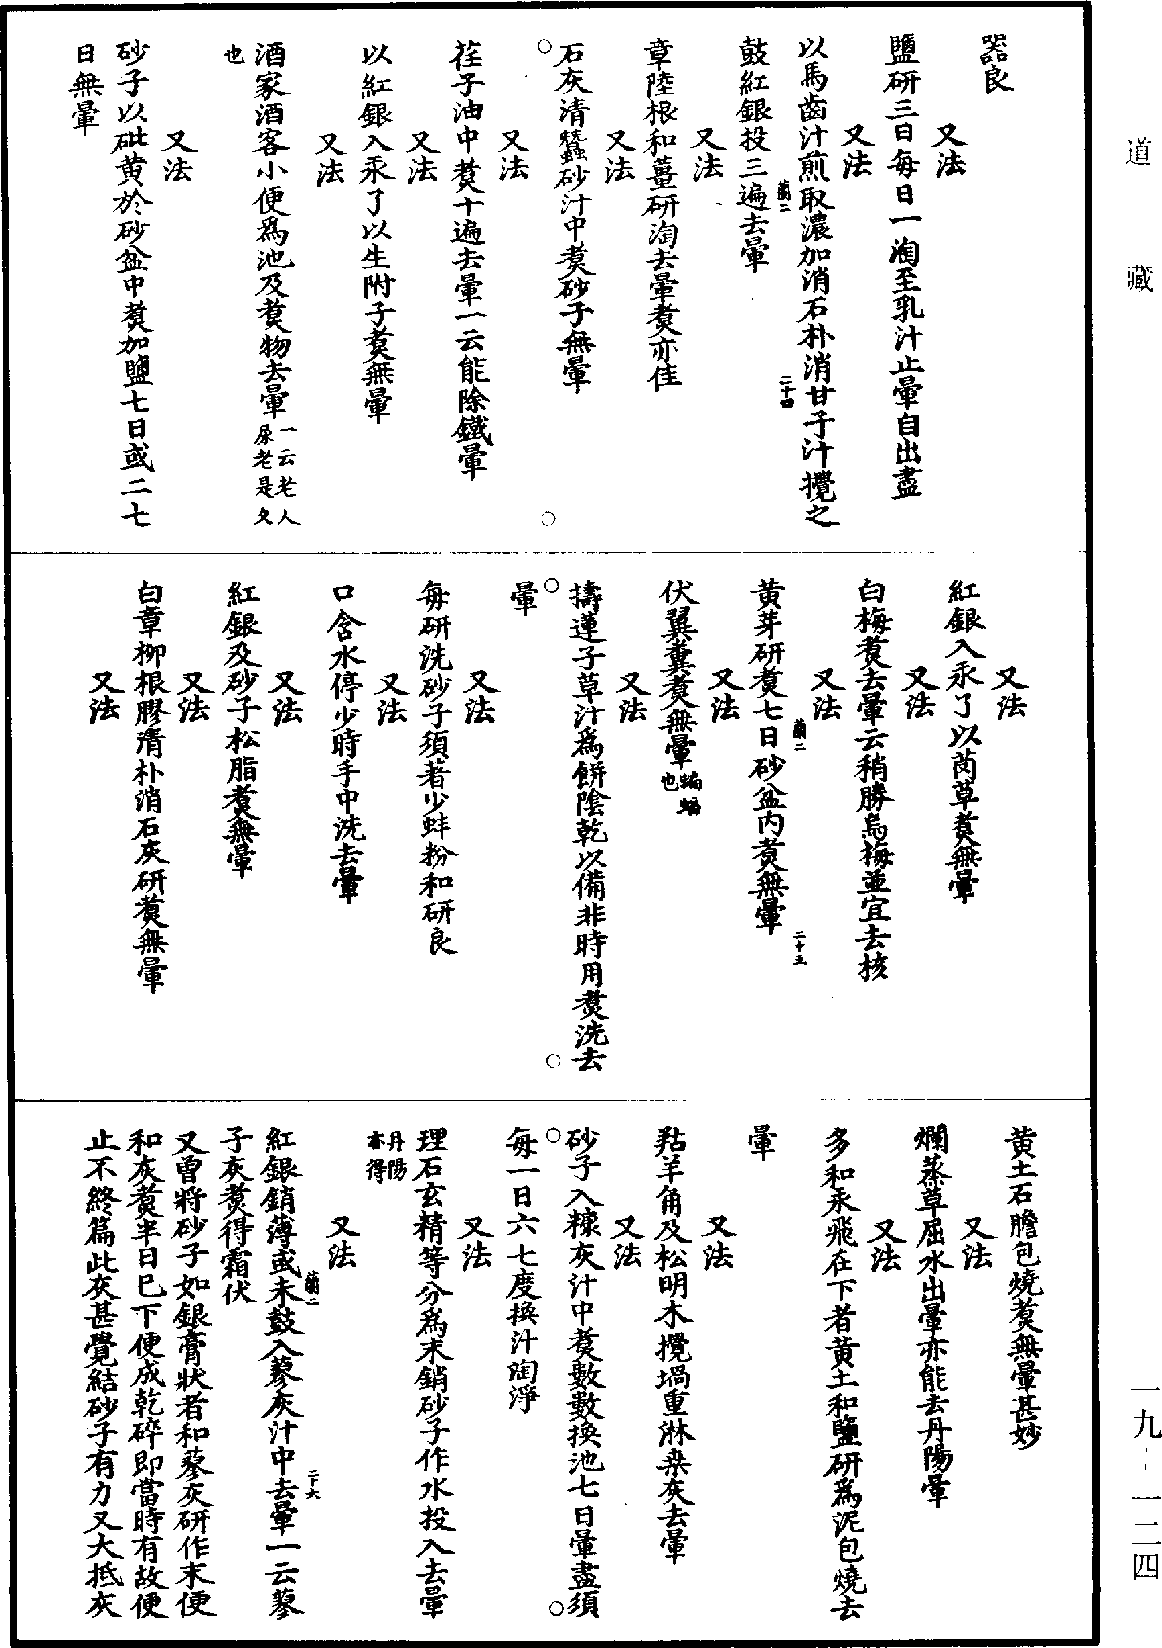 道藏
器良
又法
鹽研三日每日一淘至乳汁止暈自出盡
又法
以馬齒汁煎取濃加消石朴消甘子汁攪之
蘭二
二十四
鼓紅銀投三遍去暈
又法
章陸根和薑研淘去暈煑亦佳
又法
石灰清蠶砂汁中煑砂子無暈
又法
荏子油中煑十遍去暈一云能除鐵暈
又法
以紅銀入汞了以生附子煑無暈
又法
酒家酒客小便爲池及煑物去暈一云老人
尿老是久
也
又法
砂子以砒黄於砂盆中煑加鹽七日或二七
日無暈
又法
紅銀入汞了以茵草煑無暈
又法
白梅煑去暈云稍勝烏梅並宜去核
又法
黄芽研煑七日砂盆内煑無暈
蘭二
二十五
又法
伏翼糞煑無暈蝙蝠
也
又法
擣蓮子草汁爲餅陰乾以備非時用煑洗去
暈
又法
每研洗砂子須著少蚌粉和研良
又法
口含水停少時手中洗去暈
又法
紅銀及砂子松脂煑無暈
又法
白章柳根膠清朴消石灰研煑無暈
又法
黄土石膽包燒煑無暈甚妙
又法
爛蒸草屈水出暈亦能去丹陽暈
又法
多和汞飛在下者黄土和鹽研爲泥包燒去
暈
又法
羖羊角及松明木攪堝重淋桑灰去暈
又法
砂子入糠灰汁中煑數數换池七日暈盡須
每一日六七度换汁淘淨
又法
理石玄精等分爲末銷砂子作水投入去暈
丹陽
亦得
又法
紅銀銷薄或未鼓入藜灰汁中去暈一云藜
蘭二
二十六
子灰煑得霜伏
又曾將砂子如銀膏狀者和藜灰研作末便
和灰煑半日已下便成乾碎即當時有故便
止不終篇此灰甚覺結砂子有力又大抵灰
一九-一二四